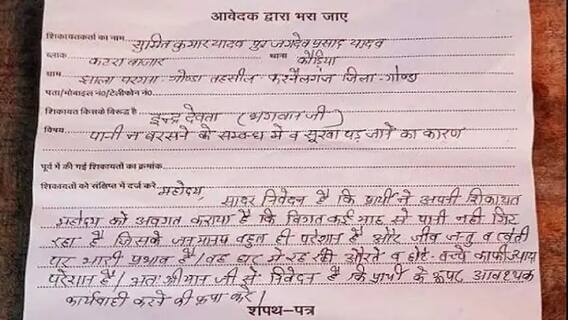 आवेदक द्वारा भरा जाए
शिकायतकर्ता का नाम सुमित कुमार यादव पुत्र जगदेव प्रसाद यादव
ब्लाक कटरा बाजार थाना कौडिया
ग्राम झाला परगना-गोण्डा तहसील करनैलगंज जिला-गोण्डा
पता/मोबाइल नं0/टेलीफोन नं0
शिकायत किसके विरूद्ध है इन्द्र देवता (भगवान जी)
विषय पानी न बरसने के सम्बन्ध में व सूखा पड़ जाने का कारण
पूर्व में की गई शिकायतों का क्रमांक
शिकायतों को संक्षिप्त में दर्ज करें महोदय,
सादर निवेदन है कि प्रार्थी ने अपनी शिकायत
महोदय को अवगत कराया है कि विगत कई माह से पानी नही गिर
रहा है जिसके जनमानस बहुत ही परेशान है और जीव जन्तु व खेती
पर भारी प्रभाव है। घर में रह रही औरते व छोटे बच्चे काफी
परेशान है। अतः श्रीमान जी से निवेदन है कि प्रार्थी के ऊपर आवश्यक
कार्यवाही करने की कृपा करें।
शपथ-पत्र